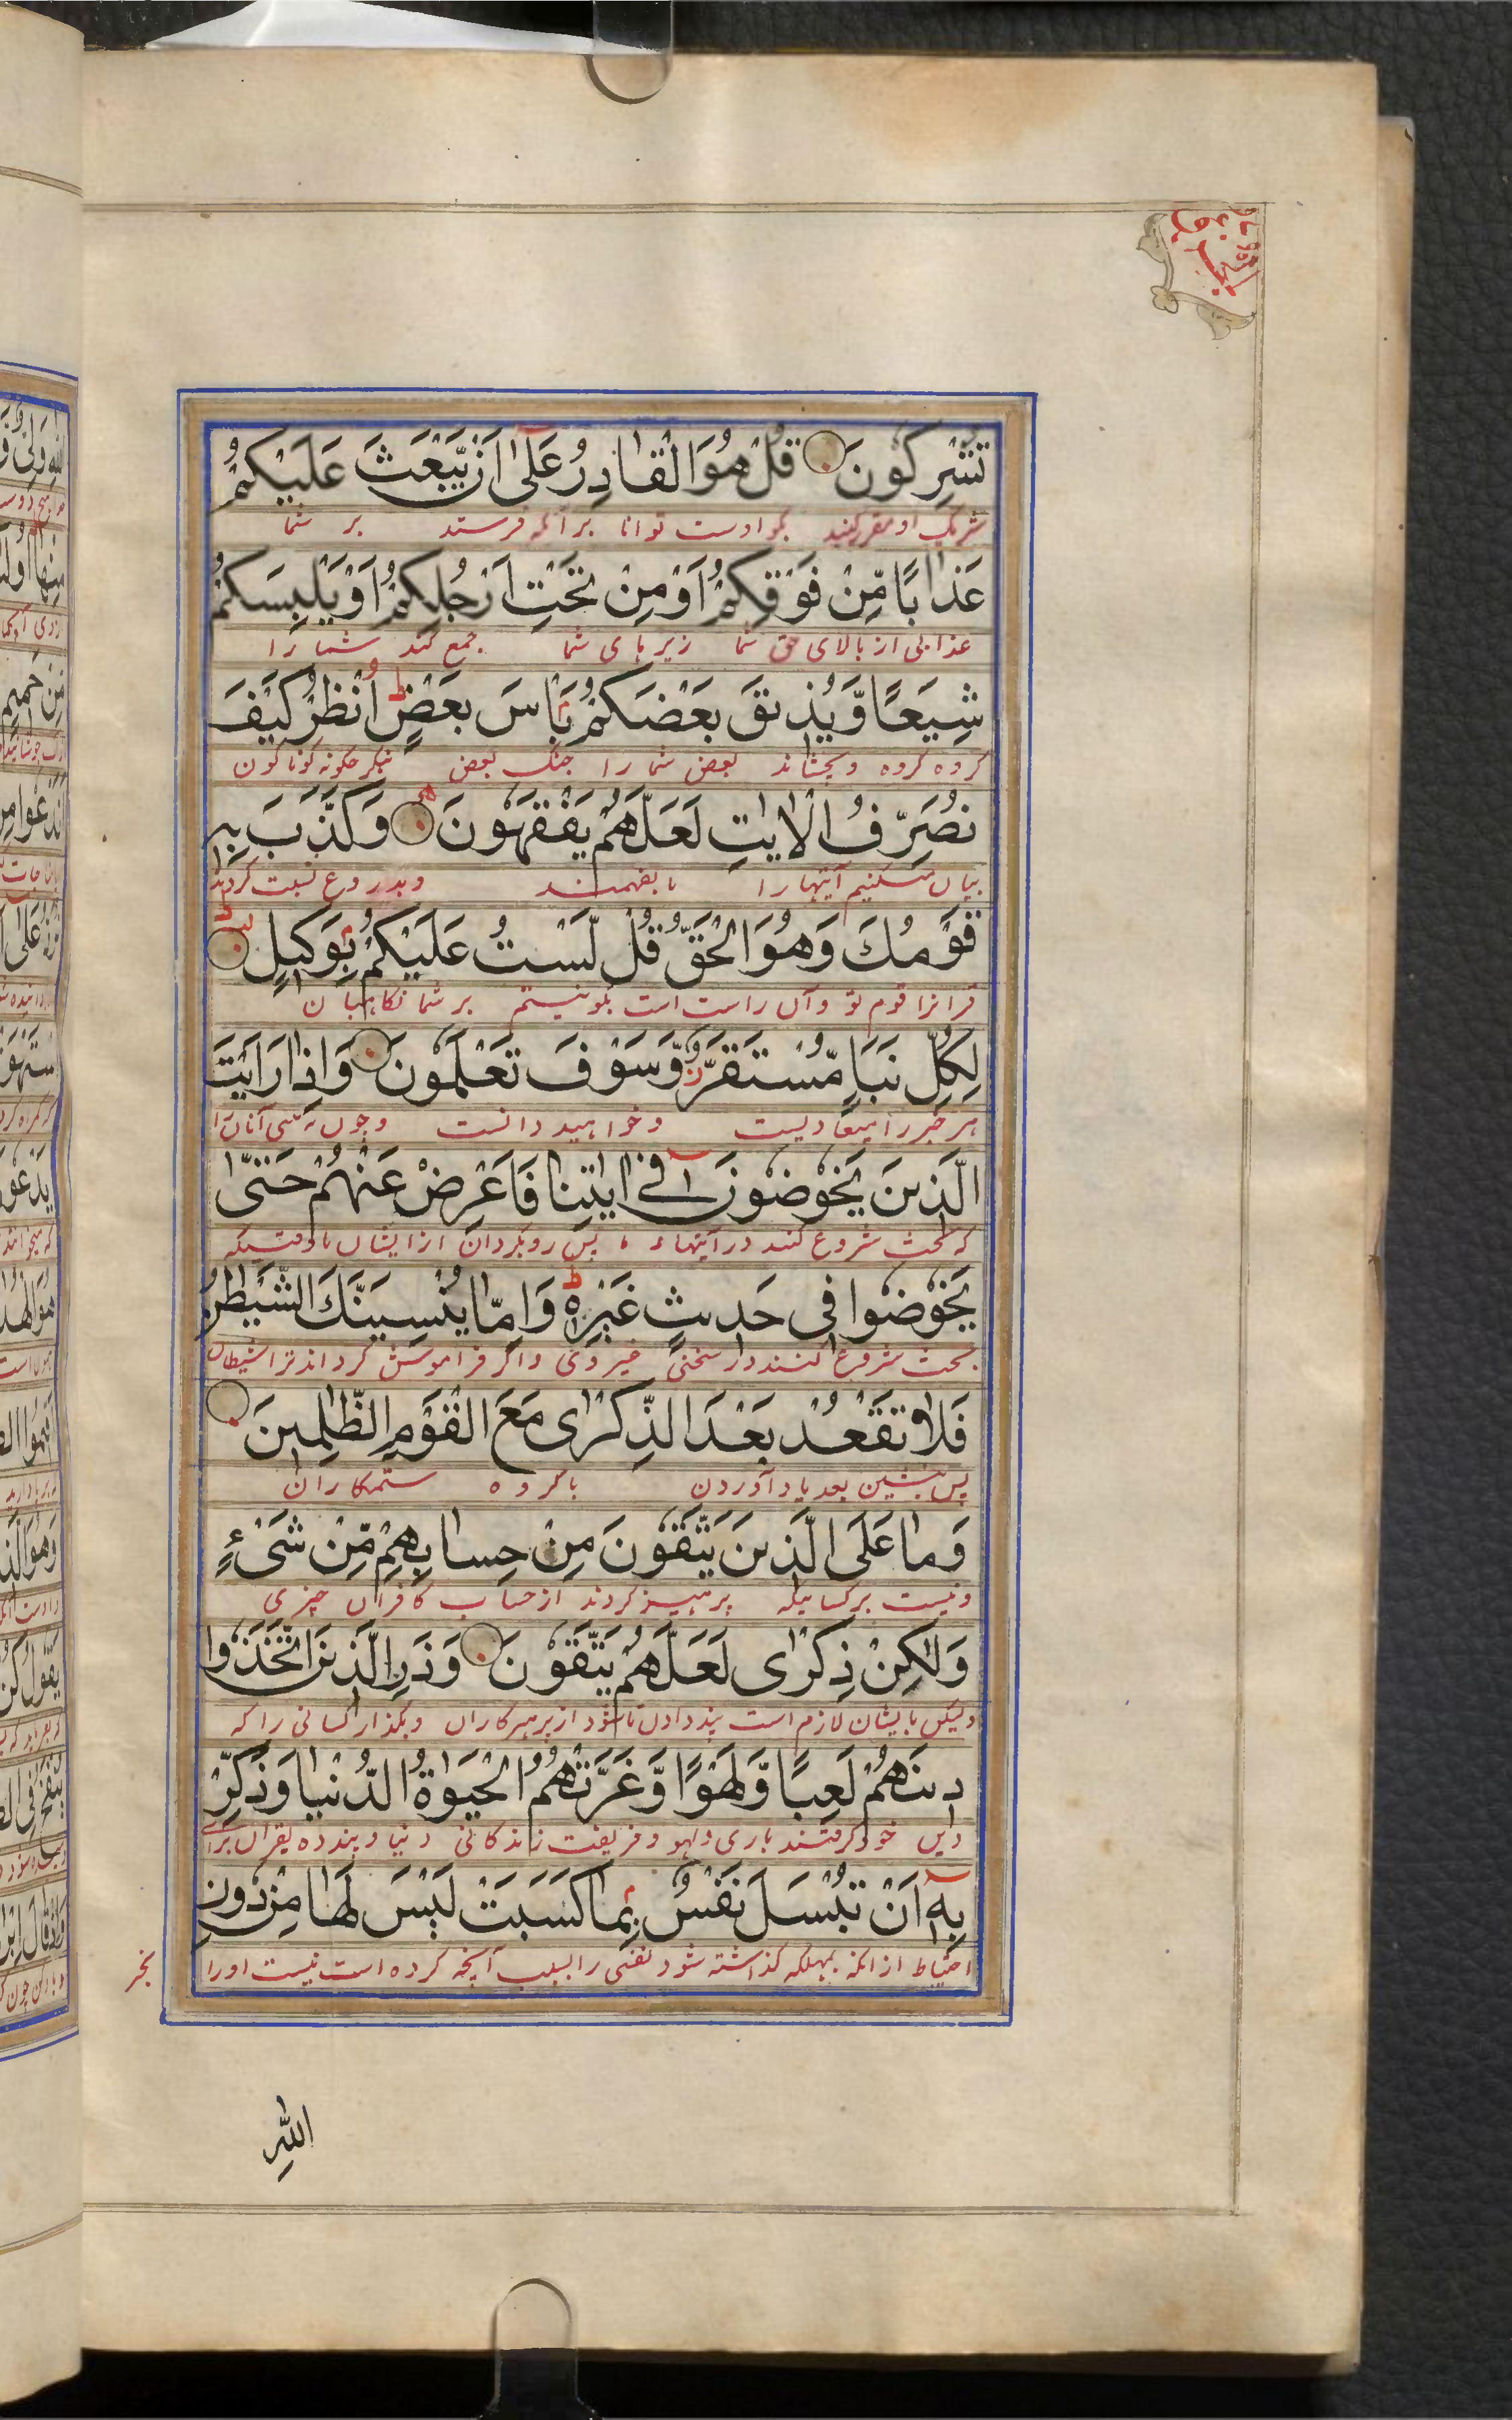 تُشْرِكُونَ قُلْ هُوَ الْقَادِرُ عَلٰٓى اَنْ يَّبْعَثَ عَلَيْكُمْ
شریک او مقرر کنید بگو اوست توانا بر آنکه فرستد بر شما
عَذَابًا مِّنْ فَوْقِكُمْ اَوْ مِنْ تَحْتِ اَرْجُلِكُمْ اَوْ يَلْبِسَكُمْ
عذابی از بالای شما زیر پای شما جمع کند شما را
شِيَعًا وَّيُذِيْقَ بَعْضَكُمْ بَاْسَ بَعْضٍ ط اُنْظُرْ كَيْفَ
گروه گروه و بچشاند بعض شما را جنگ بعض بنگر چگونه گوناگون
نُصَرِّفُ الْاٰيٰتِ لَعَلَّهُمْ يَفْقَهُوْنَ وَكَذَّبَ بِهٖ
بیان میکنیم آیتها را تا بفهمند و بدروغ نسبت کردند
قَوْمُكَ وَهُوَ الْحَقُّ قُلْ لَّسْتُ عَلَيْكُمْ بِوَكِيْلٍ ط
قرانرا قوم تو و آن راست است بگو نیستم بر شما نگاهبان
لِكُلِّ نَبَاٍ مُّسْتَقَرٌّ وَّسَوْفَ تَعْلَمُوْنَ وَاِذَا رَاَيْتَ
هر خبر را میعادیست و خواهید دانست و چون بینی آنان را
الَّذِيْنَ يَخُوْضُوْنَ فِيْٓ اٰيٰتِنَا فَاَعْرِضْ عَنْهُمْ حَتّٰى
که بحث شروع کنند در آیتهاء ما پس رو بگردان از ایشان تا وقتیکه
يَخُوْضُوْا فِيْ حَدِيْثٍ غَيْرِهٖ ط وَاِمَّا يُنْسِيَنَّكَ الشَّيْطٰنُ
بحث شروع کنند در سخنی غیر وی و اگر فراموش گرداند ترا شیطان
فَلَا تَقْعُدْ بَعْدَ الذِّكْرٰى مَعَ الْقَوْمِ الظّٰلِمِيْنَ
پس منشین بعد یاد آوردن با گروه ستمکاران
وَمَا عَلَى الَّذِيْنَ يَتَّقُوْنَ مِنْ حِسَابِهِمْ مِّنْ شَيْءٍ
و نیست بر کسانیکه پرهیز کردند از حساب کافران چیزی
وَلٰكِنْ ذِكْرٰى لَعَلَّهُمْ يَتَّقُوْنَ وَذَرِ الَّذِيْنَ اتَّخَذُوْا
ولیکن بایشان لازم است پند دادن تا شود از پرهیزکاران و بگذار کسانی را که
دِيْنَهُمْ لَعِبًا وَّلَهْوًا وَّغَرَّتْهُمُ الْحَيٰوةُ الدُّنْيَا وَذَكِّرْ
دین خود گرفتند بازی و لهو و فریفت زندگانی دنیا و پند ده بقران برای
بِهٖٓ اَنْ تُبْسَلَ نَفْسٌ بِمَا كَسَبَتْ لَيْسَ لَهَا مِنْ دُوْنِ
احتیاط از آنکه بمهلکه گذاشته شود نفسی را بسبب آنچه کرده است نیست او را
بجز
اللّٰهِ